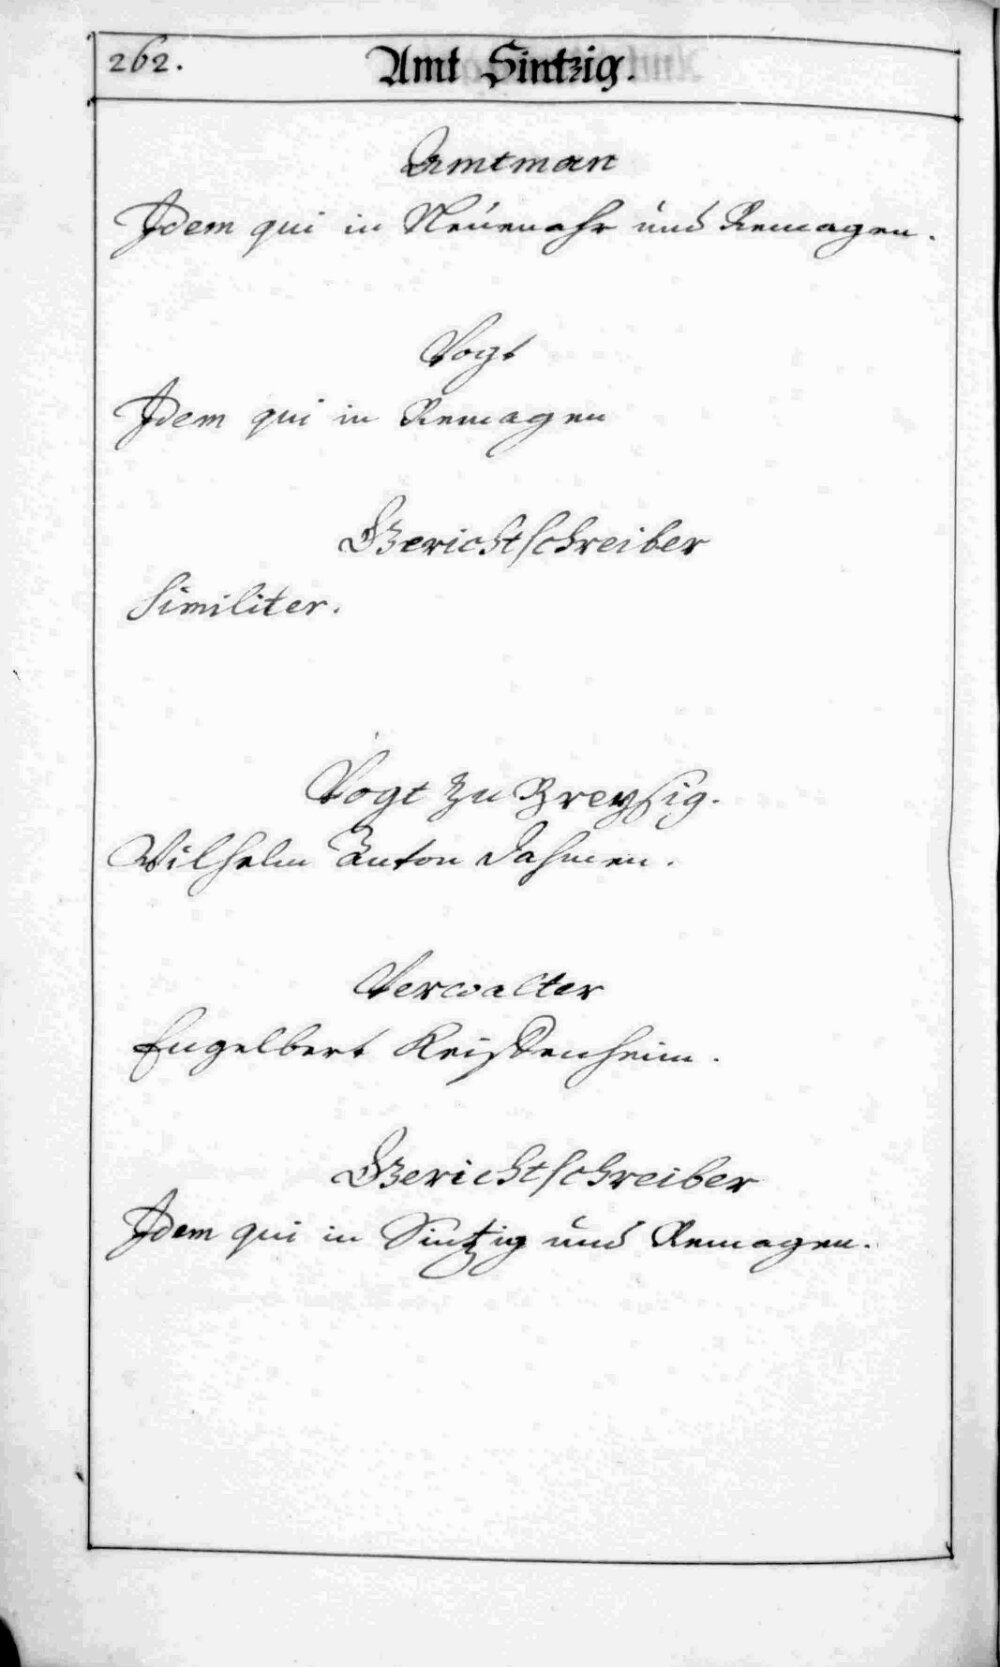 262.
Amt Sintzig.
Amtman
Idem qui in Neuenahr und Remagen.
Vogt
Idem qui in Remagen
Gerichtschreiber
Similiter.
Vogt zu Breysig.
Wilhelm Anton Dahmen.
Verwalter
Engelbert Kristenheim.
Gerichtschreiber
Idem qui in Sintzig und Remagen.